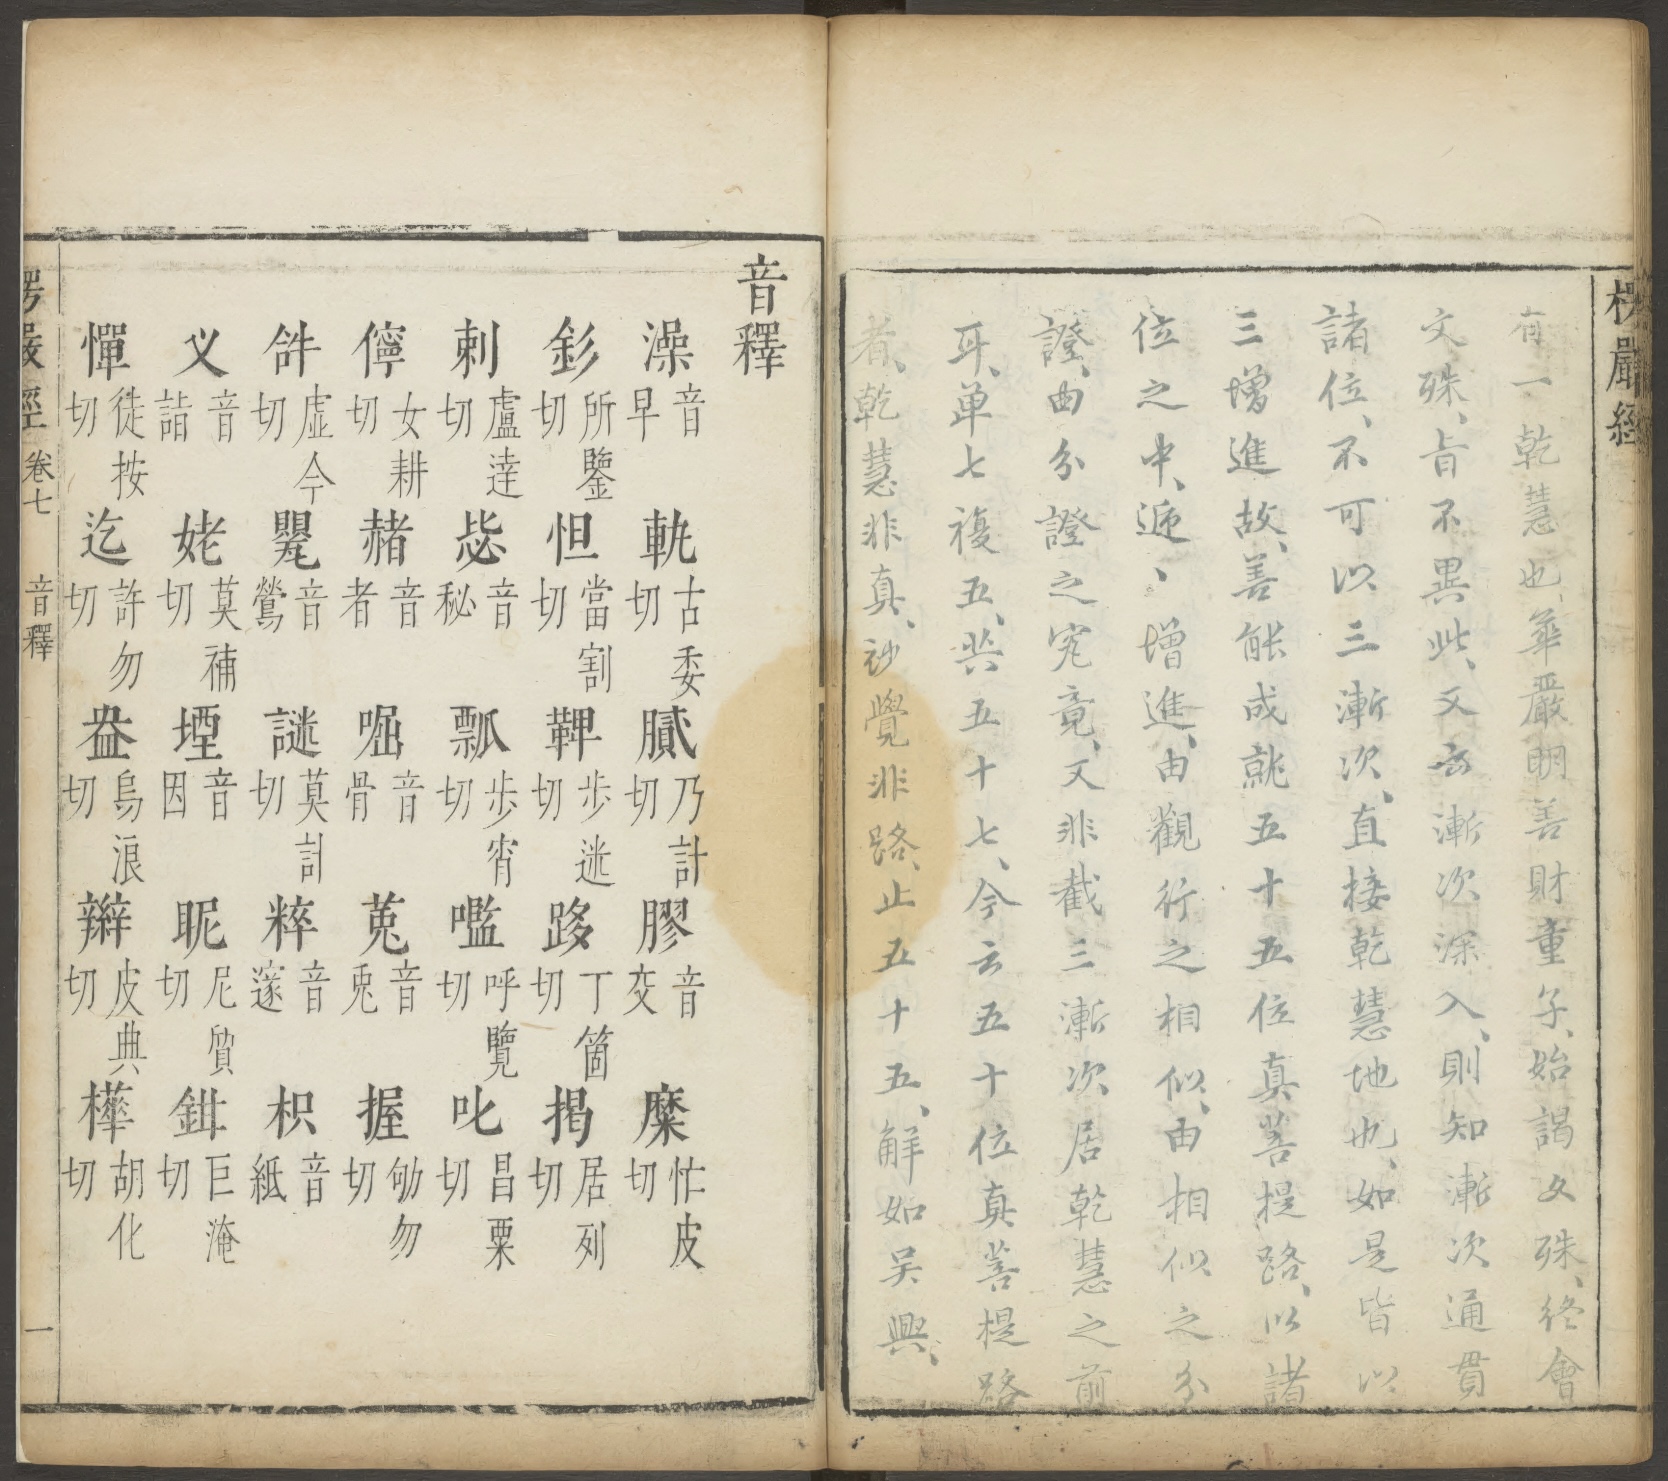 楞嚴經
有一乾慧也、華嚴明善財童子、始謁文殊、終會
文殊、旨不異此、又云漸次深入、則知漸次通貫
諸位、不可以三漸次、直接乾慧地也、如是皆以
三增進故、善能成就五十五位真菩提路、以諸
位之中、遞、增進、由觀行之相似、由相似之分
證、由分證之究竟、又非截三漸次居乾慧之前
耳、單七複五、共五十七、今云五十位真菩提路
者、乾慧非真、妙覺非路、止五十五、解如吳興、
音釋
澡音早 軌古委切 膩乃計切 膠音交 糜忙皮切
釤所鑒切 怛當割切 鞞步迷切 跢丁箇切 揭居列切
剌盧達切 毖音秘 瓢步宵切 嚂呼覽切 叱昌栗切
儜女耕切 赭音者 啒音骨 莵音兎 掘劬勿切
𤙖虛今切 甖音鶯 謎莫計切 粹音邃 枳音紙
乂音詣 姥莫補切 堙音因 昵尼質切 鉗巨淹切
憚徒按切 迄許勿切 盎烏浪切 辮皮典切 樺胡化切
楞嚴經 卷七 音釋 一